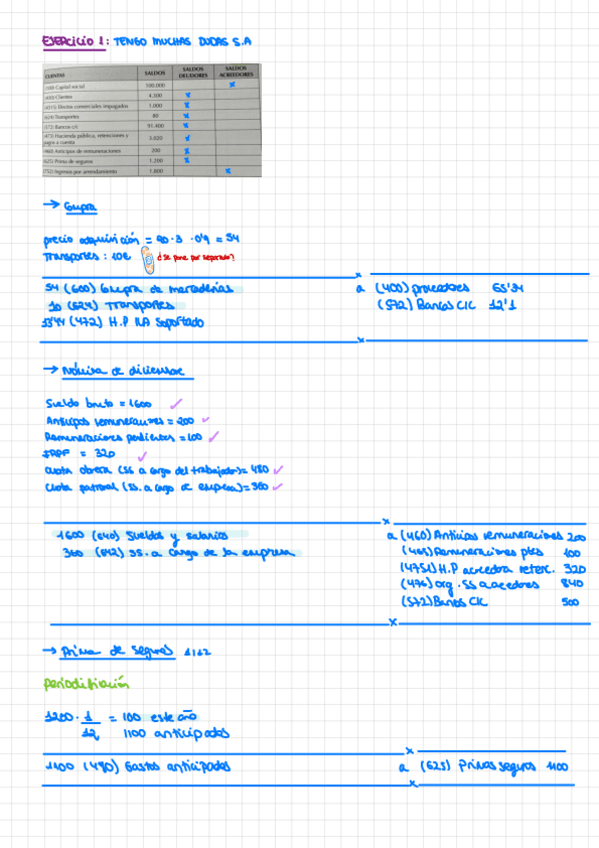 EJERCICIO 1: TENGO MUCHAS DUDAS S.A
CUENTAS SALDOS SALDOS DEUDORES SALDOS ACREEDORES
(100) Capital social 100.000 x
(430) Clientes 4.300 x
(4315) Efectos comerciales impagados 1.000 x
(624) Transportes 80 x
(572) Bancos c/c 91.400 x
(473) Hacienda pública, retenciones y pagos a cuenta 3.620 x
(460) Anticipos de remuneraciones 200 x
(625) Prima de seguro 1.200 x
(752) Ingreso por arrendamiento 1.800 x
→ Compra
precio adquisición = 20·3 ·0'9 = 54
Transportes: 10€ ¿se pone por separado?
54 (600) Compra de mercaderías a (400) proveedores 65'34
10 (624) Transportes (572) Bancos C/C 12'1
13'44 (472) H.P IVA Soportado
→ Nómina de diciembre
Sueldo bruto = 1600 ✓
Anticipos remuneraciones = 200 ✓
Remuneraciones pendientes = 100 ✓
IRPF = 320 ✓
cuota obrera (SS a cargo del trabajador) = 480 ✓
Cuota patronal (SS. a cargo de empresa) = 360 ✓
1600 (640) Sueldos y salarios a (460) Anticipos remuneraciones 200
360 (642) SS. a cargo de la empresa (465) Remuneraciones ptes 100
(4751) H.P acreedora retenc. 320
(476) org. SS acreedores 840
(572) Bancos C/C 500
→ Prima de Seguros 1/12
periodificación
1200 · 1/12 = 100 este año
1100 anticipados
1100 (480) Gastos anticipados a (625) Primas seguros 1100